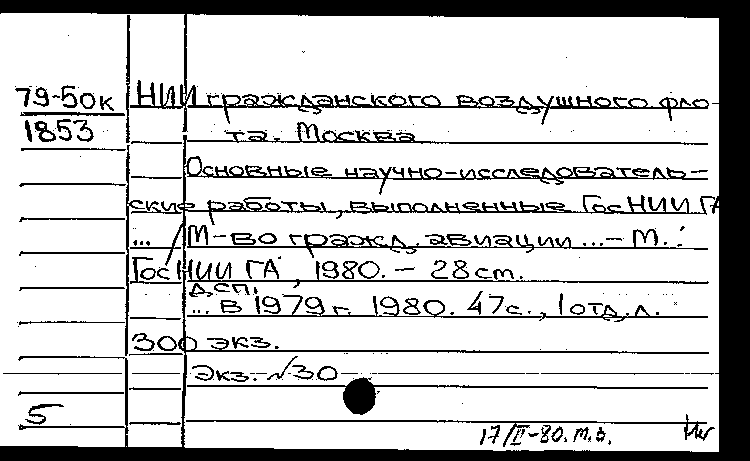 79-50к НИИ гражданского воздушного фло-
1853 та. Москва
Основные научно-исследователь-
ские работы, выполненные ГосНИИ ГА
... М-во гражд. авиации ... - М.:
ГосНИИ ГА, 1980. - 28 cm.
д.сп.
... в 1979 г. 1980. 47 с., 1 отд. л.
300 экз.
Экз. №30
5
17/II-80. т.з.